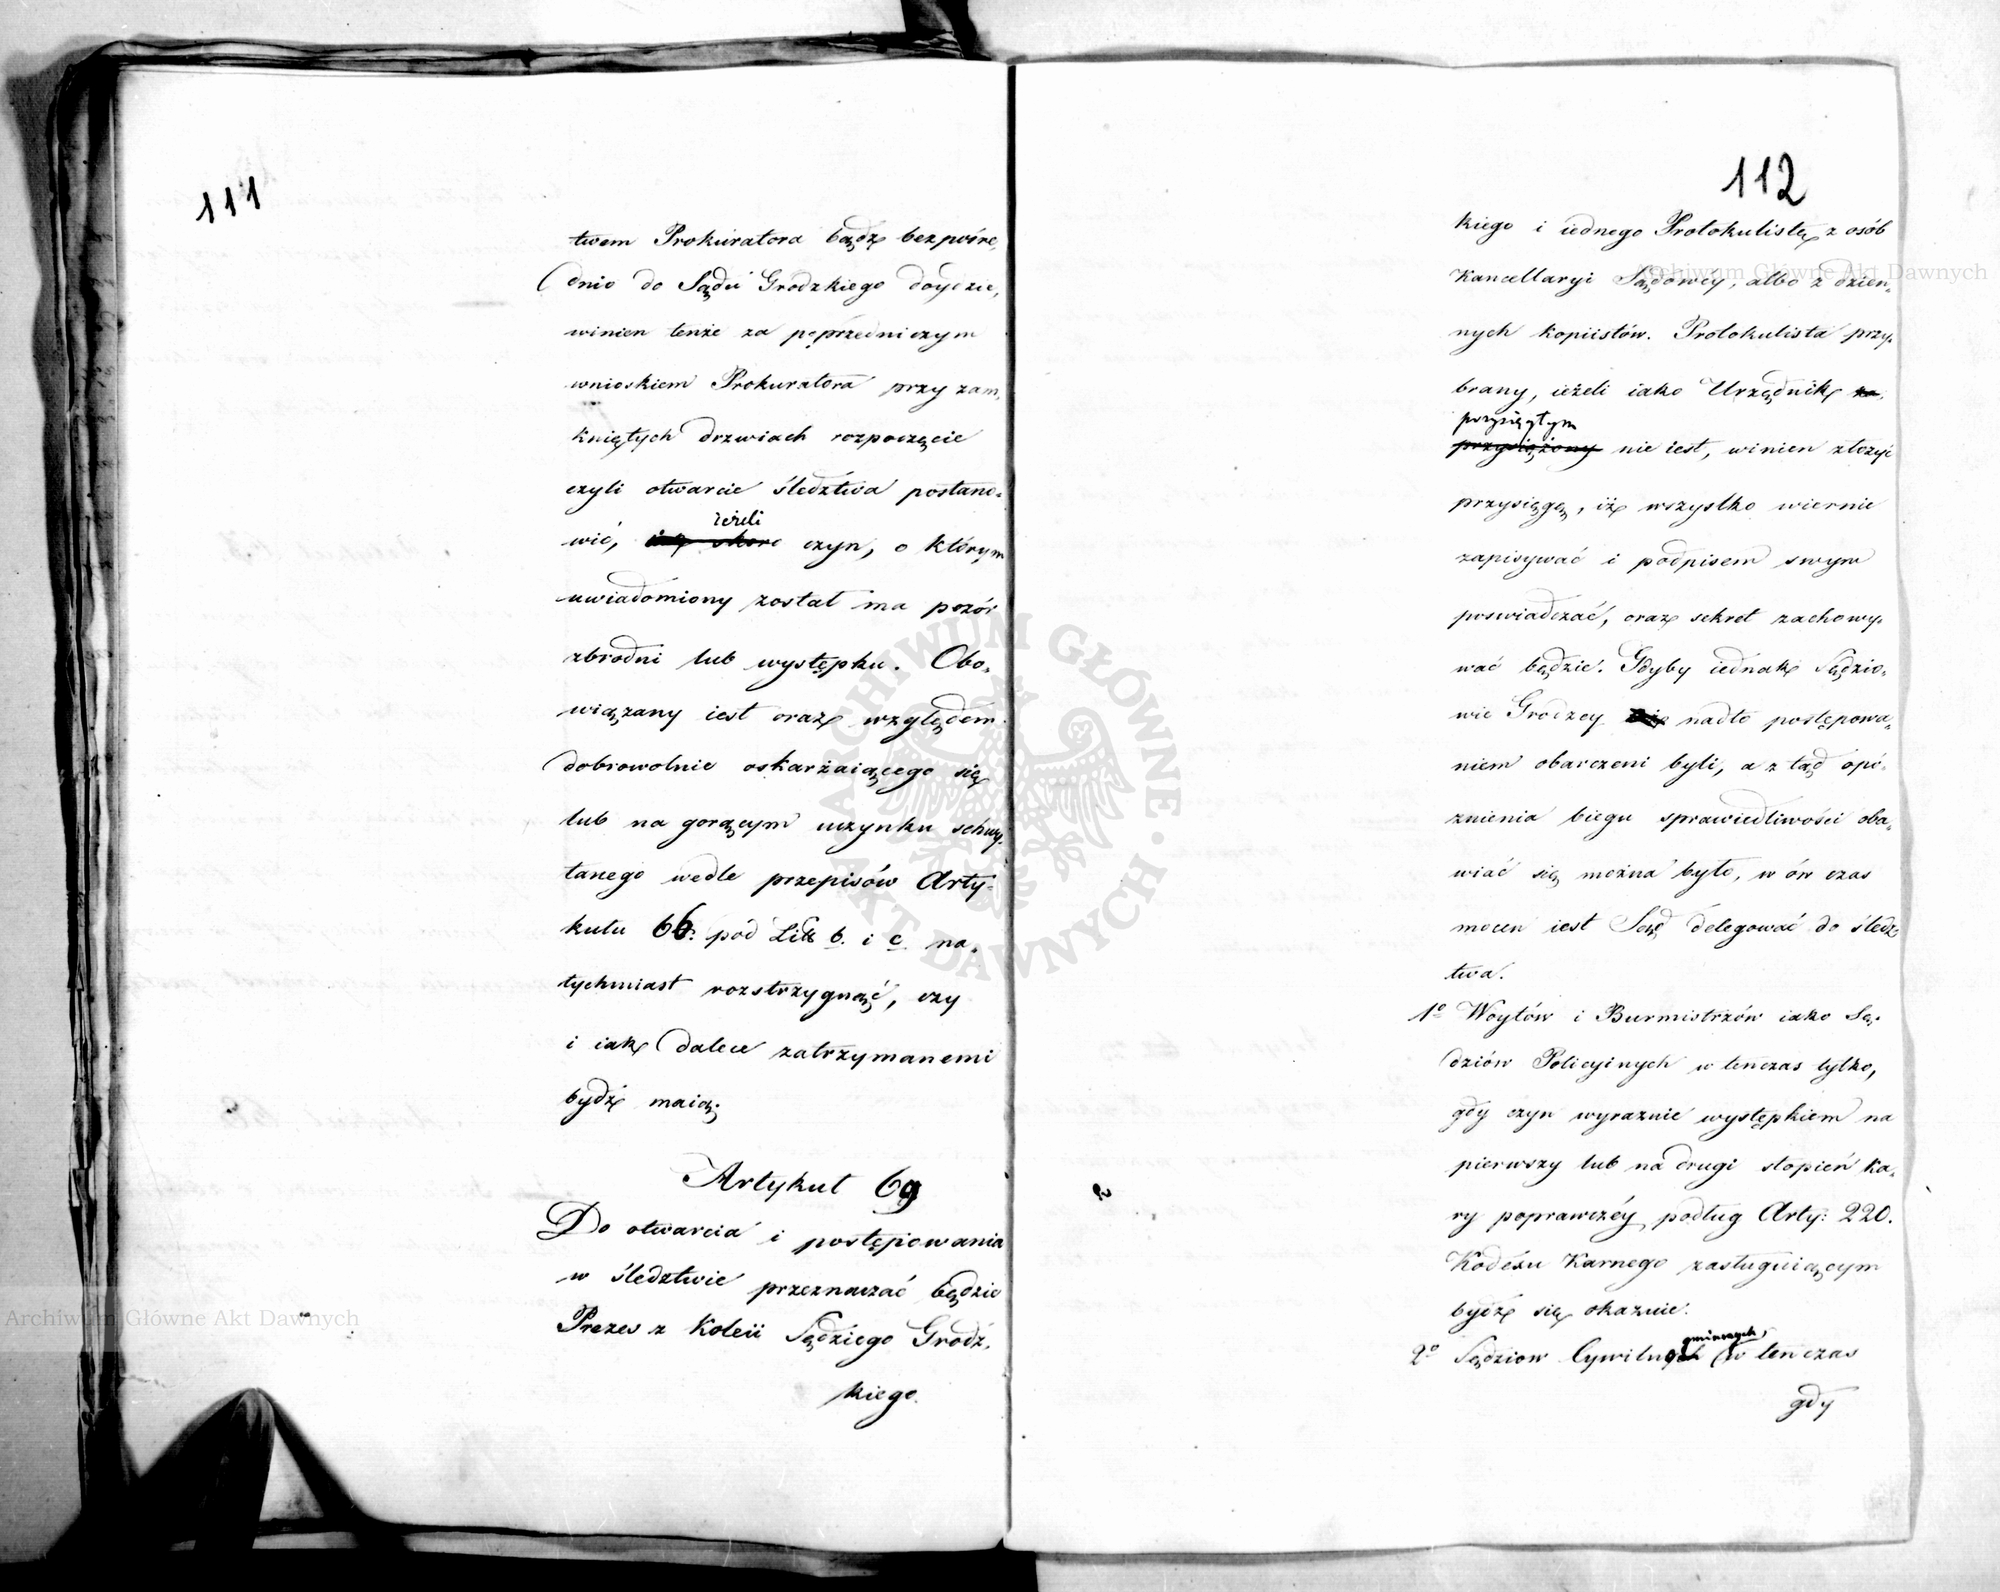 111
twem Prokuratora bądz bezpośre,
dnio do Sądu Grodzkiego doydzie,
winien tenże za poprzedniczym
wnioskiem Prokuratora przy zam,
kniętych drzwiach rozpoczęcie
czyli otwarcie śledztwa postano=
ieżeli
wić, skoro czyn, o którym
uwiadomiony został ma pozór
zbrodni lub występku. Obo,
wiązany iest oraz względem
dobrowolnie oskarżaiącego się
lub na gorącym uczynku schwy,
tanego wedle przepisów Arty=
kułu 66: pod Litt b. i c na,
tychmiast rozstrzygnąć, czy
i iak dalece zatrzymanemi
bydź maią.
Artykuł 69
Do otwarcia i postępowania
w śledztwie przeznaczać będzie
Prezes z Koleii Sędziego Grodz,
kiego.
112
kiego i iednego Protokulistę z osób
Kancellaryi Sądowéy, albo z dzien,
nych kopiistów. Protokulista przy,
brany, ieżeli iako Urzędnik za,
przysięgłym
przysiężony nie iest, winien złożyć
przysięgę, iż wszystko wiernie
zapisywać i podpisem swym
poswiadczać, oraz sekret zachowy,
wać będzie. Gdyby iednak Sędzio,
wie Grodzcy nadto postępowa,
niem obarczeni byli, a z tąd opó,
znienia biegu sprawiedliwości oba,
wiać się można było, w ów czas
mocen iest Sąd delegować do śledz
twa.
1º Woytów i Burmistrzów iako Sę,
dziów Policyinych w tenczas tylko,
gdy czyn wyraznie występkiem na
pierwszy lub na drugi stopień ka,
ry poprawczéy podług Arty: 220.
Kodexu Karnego zasługuiącym
bydź się okaznie.
gminnych,
2º Sędziow Cywilnych w tenczas
gdy
Archiwum Główne Akt Dawnych
Archiwum Główne Akt Dawnych
ARCHIWUM GŁÓWNE AKT DAWNYCH